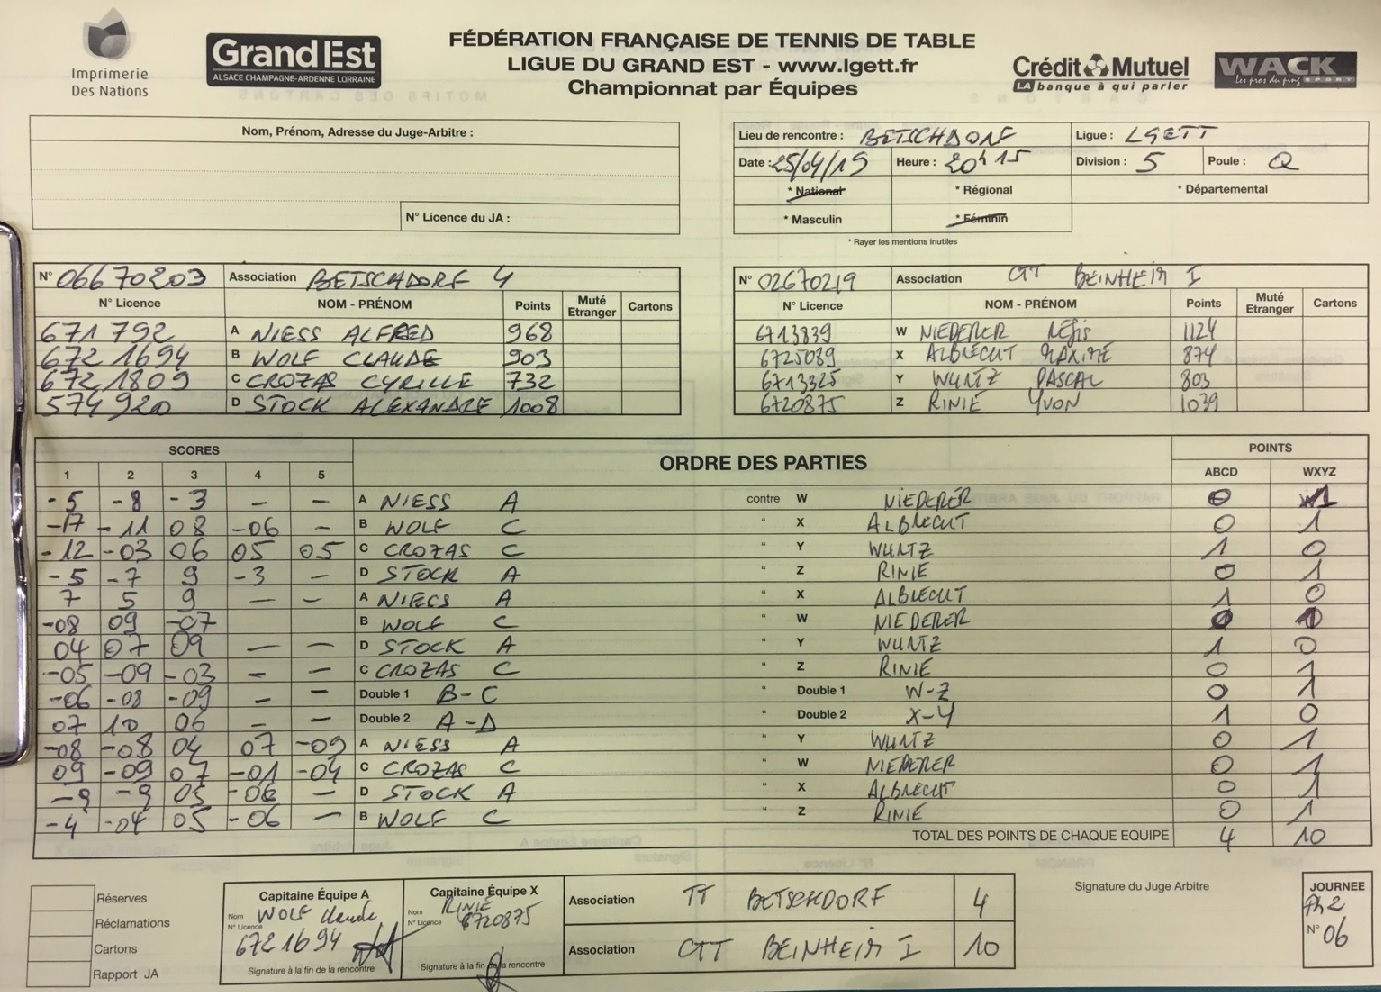 Imprimerie
Des Nations
GrandEst
ALSACE CHAMPAGNE-ARDENNE LORRAINE
FÉDÉRATION FRANÇAISE DE TENNIS DE TABLE
LIGUE DU GRAND EST - www.lgett.fr
Championnat par Équipes
Crédit Mutuel
LA banque à qui parler
WACK
SPORT
Les pros du ping
Nom, Prénom, Adresse du Juge-Arbitre :
N° Licence du JA :
Lieu de rencontre : BETSCHDORF Ligue : LGETT
Date : 25/04/19 Heure : 20h15 Division : 5 Poule : Q
* National * Régional * Départemental
* Masculin * Féminin
* Rayer les mentions inutiles
N° 06670203 Association BETSCHDORF 4
N° Licence NOM - PRÉNOM Points Muté Etranger Cartons
671 792 A NIESS ALFRED 968
672 1694 B WOLF CLAUDE 903
672 1809 C CROZAS CYRILLE 732
574 920 D STOCK ALEXANDRE 1008
N° 02670219 Association CTT BEINHEIM I
N° Licence NOM - PRÉNOM Points Muté Etranger Cartons
6713839 W NIEDERER Régis 1124
6725089 X ALBRECHT MAXIME 874
6713325 Y WURTZ PASCAL 803
6720875 Z RINIE YVON 1039
SCORES ORDRE DES PARTIES POINTS
1 2 3 4 5 ABCD WXYZ
-5 -8 -3 — — A NIESS A contre W NIEDERER 0 1
-17 -11 08 -06 — B WOLF C " X ALBRECHT 0 1
-12 -03 06 05 05 C CROZAS C " Y WURTZ 1 0
-5 -7 9 -3 — D STOCK A " Z RINIE 0 1
7 5 9 — — A NIESS A " X ALBRECHT 1 0
-08 09 -07 B WOLF C " W NIEDERER 0 1
04 07 09 — — D STOCK A " Y WURTZ 1 0
-05 -09 -03 — — C CROZAS C " Z RINIE 0 1
-06 -08 -09 — — Double 1 B-C " Double 1 W-Z 0 1
07 10 06 — — Double 2 A-D " Double 2 X-Y 1 0
-08 -08 04 07 -09 A NIESS A " Y WURTZ 0 1
09 -09 07 -01 -04 C CROZAS C " W NIEDERER 0 1
-9 -9 05 -06 — D STOCK A " X ALBRECHT 0 1
-4 -04 05 -06 — B WOLF C " Z RINIE 0 1
TOTAL DES POINTS DE CHAQUE EQUIPE 4 10
Réserves
Réclamations
Cartons
Rapport JA
Capitaine Équipe A
Nom WOLF Claude
N° Licence 6721694
Signature à la fin de la rencontre
Capitaine Équipe X
Nom RINIE
N° Licence 6720875
Signature à la fin de la rencontre
Association TT BETSCHDORF 4
Association CTT BEINHEIM I 10
Signature du Juge Arbitre
JOURNEE
Ph2
N° 06